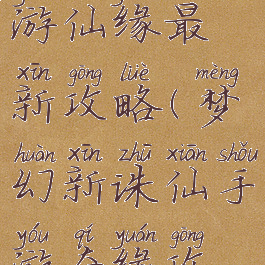 游仙缘最
xīn gōng lüè mèng
新攻略(梦
huàn xīn zhū xiān shǒu
幻新诛仙手
yóu qí yuán gōng